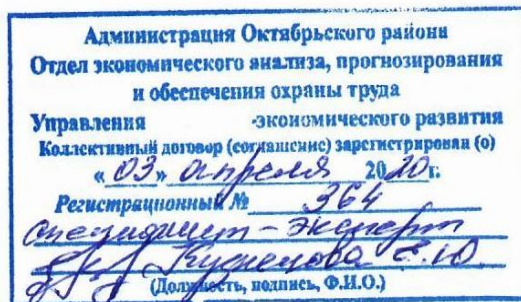 Администрация Октябрьского района
Отдел экономического анализа, прогнозирования
и обеспечения охраны труда
Управления -экономического развития
Коллективный договор (соглашение) зарегистрирован (о)
« 03 » апреля 2020 г.
Регистрационный № 364
специалист - эксперт
Кузнецова Е.Ю.
(Должность, подпись, Ф.И.О.)